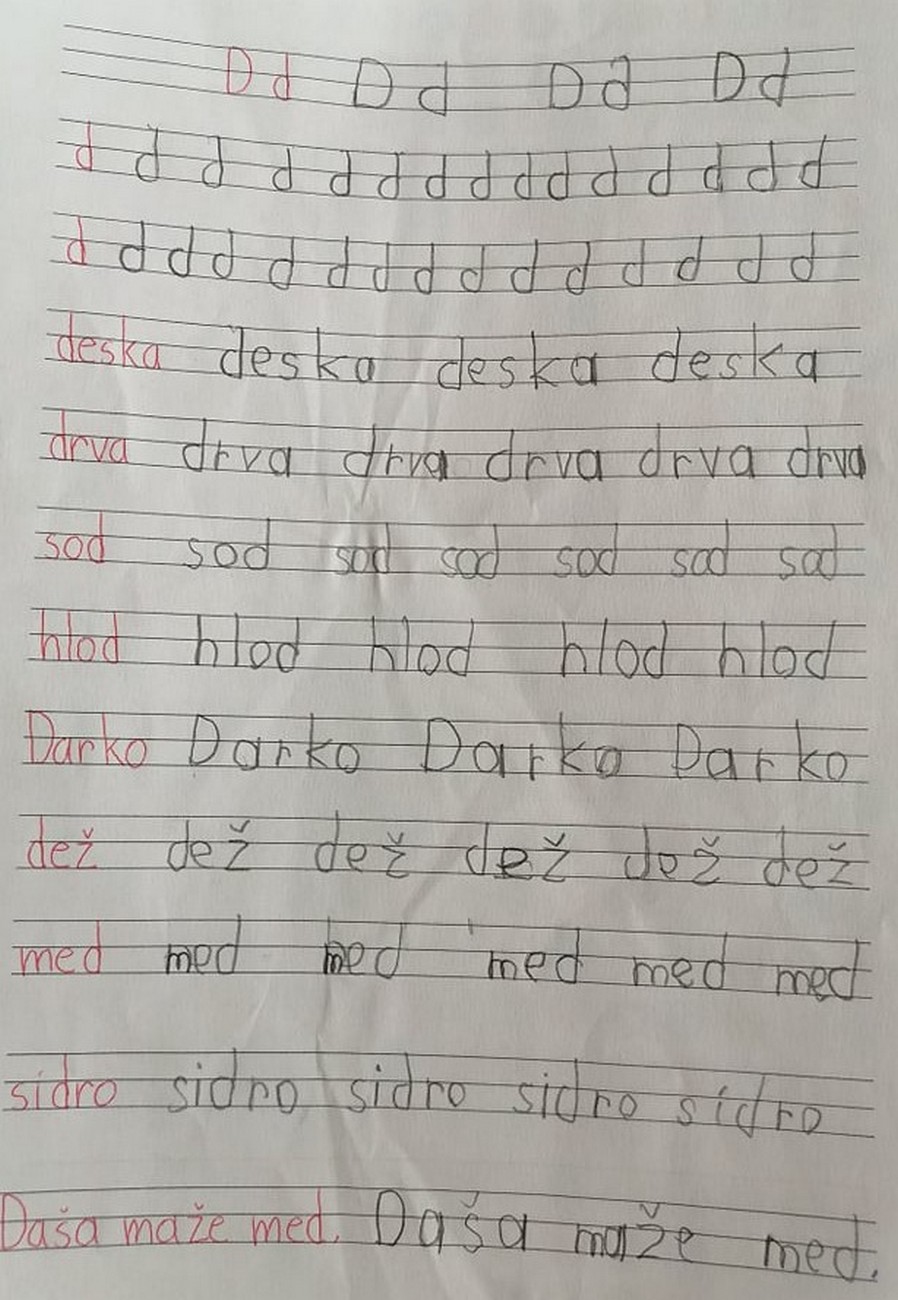 Dd Dd Dd Dd
d d d d d d d d d d d d d d d
d d d d d d d d d d d d d d d
deska deska deska deska
drva drva drva drva drva drva
sod sod sod sod sod sod sod
hlod hlod hlod hlod hlod
Darko Darko Darko Darko
dež dež dež dež dež dež
med med med med med med
sidro sidro sidro sidro sidro
Daša maže med. Daša maže med.